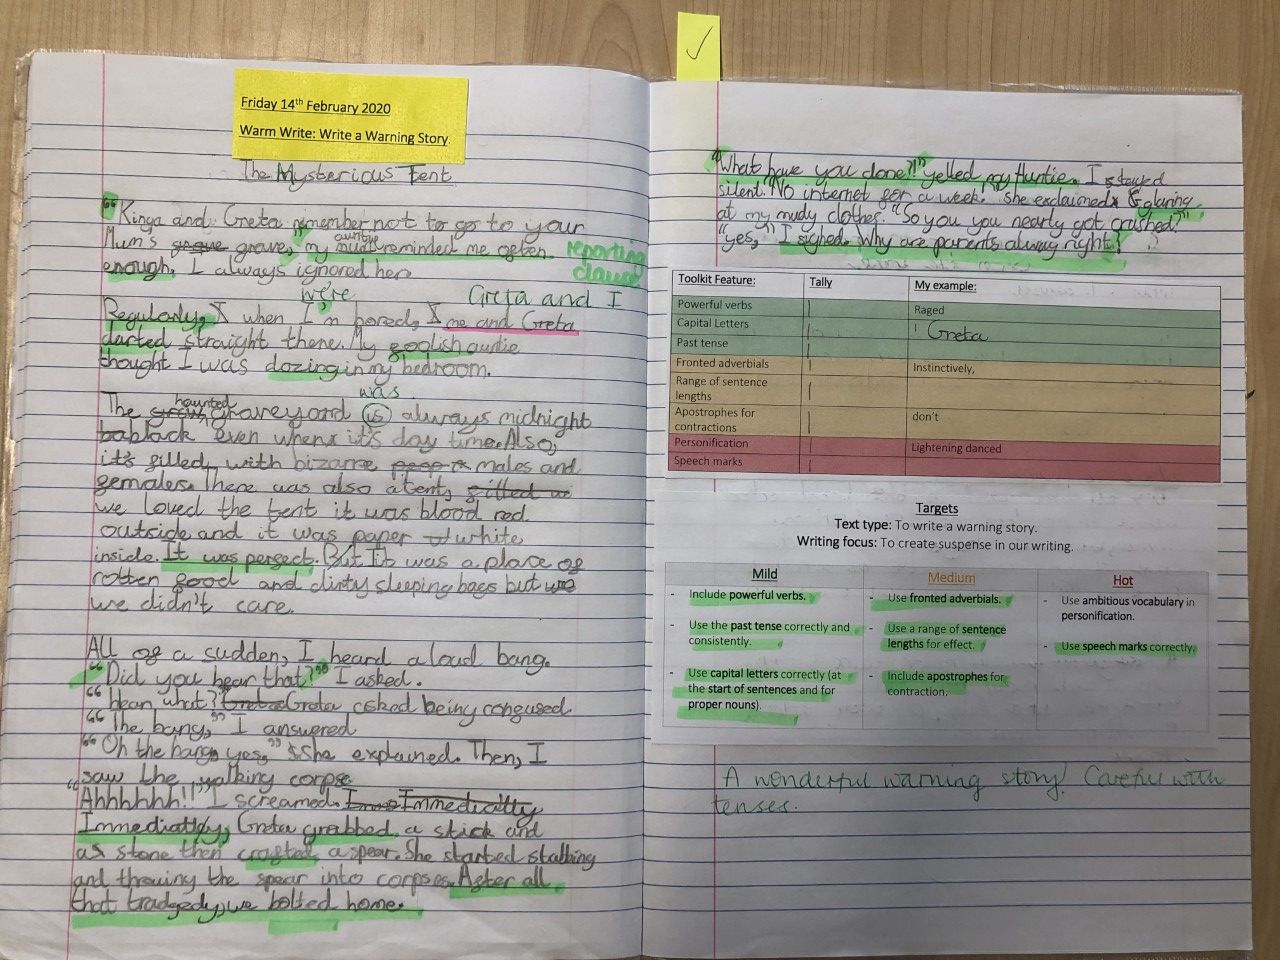 Friday 14th February 2020
Warm Write: Write a Warning Story.
The Mysterious Tent
"Kinga and Greta remember not to go to your
Mum's grave, my auntie reminded me often
reporting
clause
enough, I always ignored her.
were
Greta and I
Regularly, when I'm bored, me and Greta
darted straight there. My foolish auntie
thought I was dozing in my bedroom.
haunted
was
The graveyard is always midnight
black even when it's day time. Also,
it's filled with bizarre males and
females. There was also a tent,
we loved the tent it was blood red
outside and it was paper white
inside. It was perfect. But it was a place of
rotten food and dirty sleeping bags but
we didn't care.
All of a sudden, I heard a loud bang.
"Did you hear that?" I asked.
"Hear what? Greta asked being confused.
"The bang," I answered
"Oh the bang yes," She explained. Then, I
saw the walking corpse
"Ahhhhhh!!" I screamed. Immediatly
Immediatly, Greta grabbed a stick and
a stone then crafted a spear. She started stabbing
and throwing the spear into corpses. After all
that tradgedy, we bolted home.
✓
"What have you done?!" yelled my Auntie. I stayed
silent. "No internet for a week." she exclaimed glaring
at my mudy clothes. "So you you nearly got crushed!"
"yes," I sighed. Why are parents alway right?
Toolkit Feature: Tally My example:
Powerful verbs | Raged
Capital Letters | Greta
Past tense |
Fronted adverbials | Instinctively,
Range of sentence
lengths |
Apostrophes for
contractions | don't
Personification | Lightening danced
Speech marks |
Targets
Text type: To write a warning story.
Writing focus: To create suspense in our writing.
Mild
- Include powerful verbs.
- Use the past tense correctly and
consistently.
- Use capital letters correctly (at
the start of sentences and for
proper nouns).
Medium
- Use fronted adverbials.
- Use a range of sentence
lengths for effect.
- Include apostrophes for
contraction.
Hot
- Use ambitious vocabulary in
personification.
- Use speech marks correctly.
A wonderful warning story! Careful with
tenses.